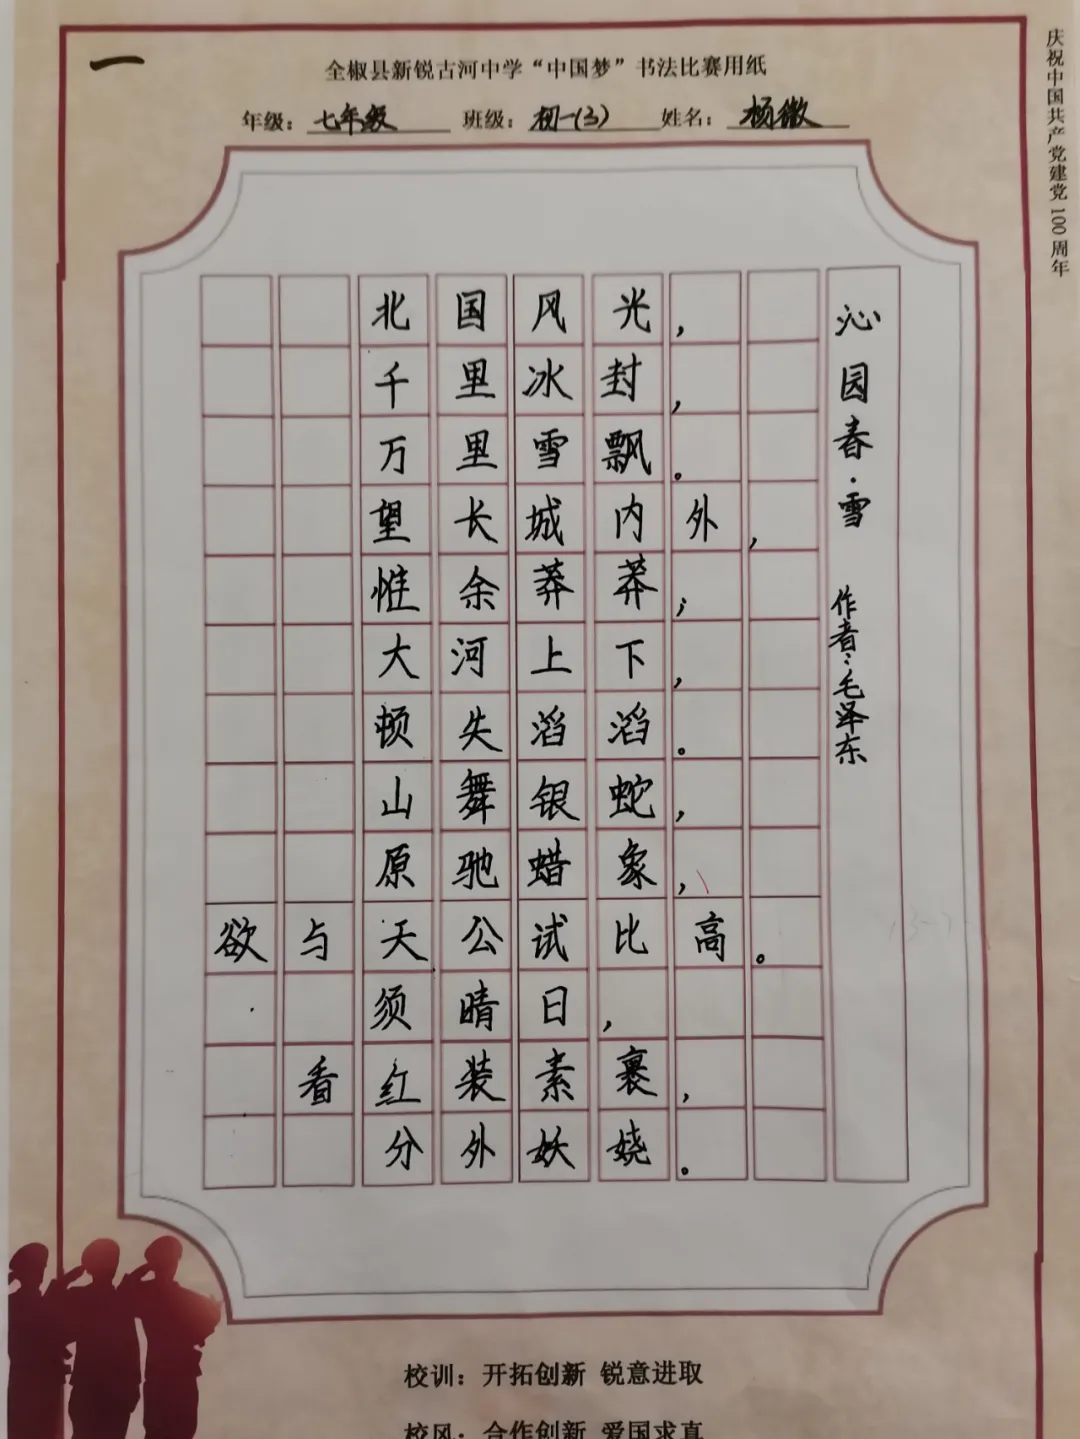 一
全椒县新锐古河中学“中国梦”书法比赛用纸
年级：七年级 班级：初一(3) 姓名：杨微
庆祝中国共产党建党100周年
沁园春·雪 作者：毛泽东
北国风光，
千里冰封，
万里雪飘。
望长城内外，
惟余莽莽；
大河上下，
顿失滔滔。
山舞银蛇，
原驰蜡象，
欲与天公试比高。
须晴日，
看红装素裹，
分外妖娆。
校训：开拓创新 锐意进取
校风：合作创新 爱国求真